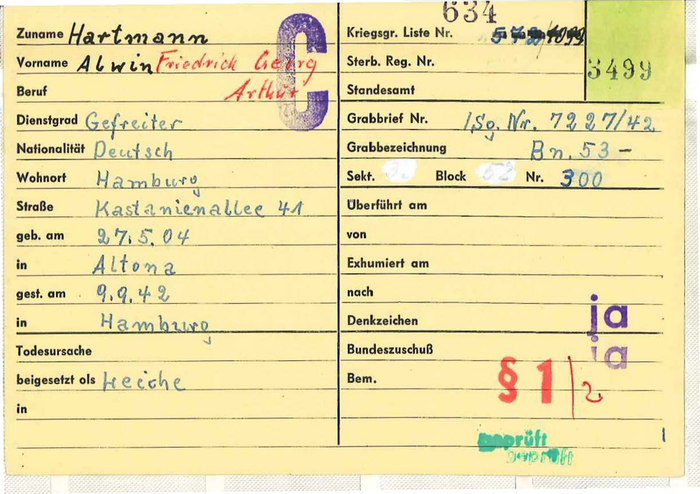 634
3499
C
Zuname Hartmann
Vorname Alwin Friedrich Georg
Beruf Arthur
Dienstgrad Gefreiter
Nationalität Deutsch
Wohnort Hamburg
Straße Kastanienallee 41
geb. am 27.5.04
in Altona
gest. am 9.9.42
in Hamburg
Todesursache
beigesetzt als Leiche
in
Kriegsgr. Liste Nr. 572/1099
Sterb. Reg. Nr.
Standesamt
Grabbrief Nr. /Sg. Nr. 7227/42
Grabbezeichnung Bn. 53 -
Sekt. Block Nr. 300
Überführt am
von
Exhumiert am
nach
Denkzeichen ja
Bundeszuschuß ja
Bem. § 1/2
geprüft
geprüft